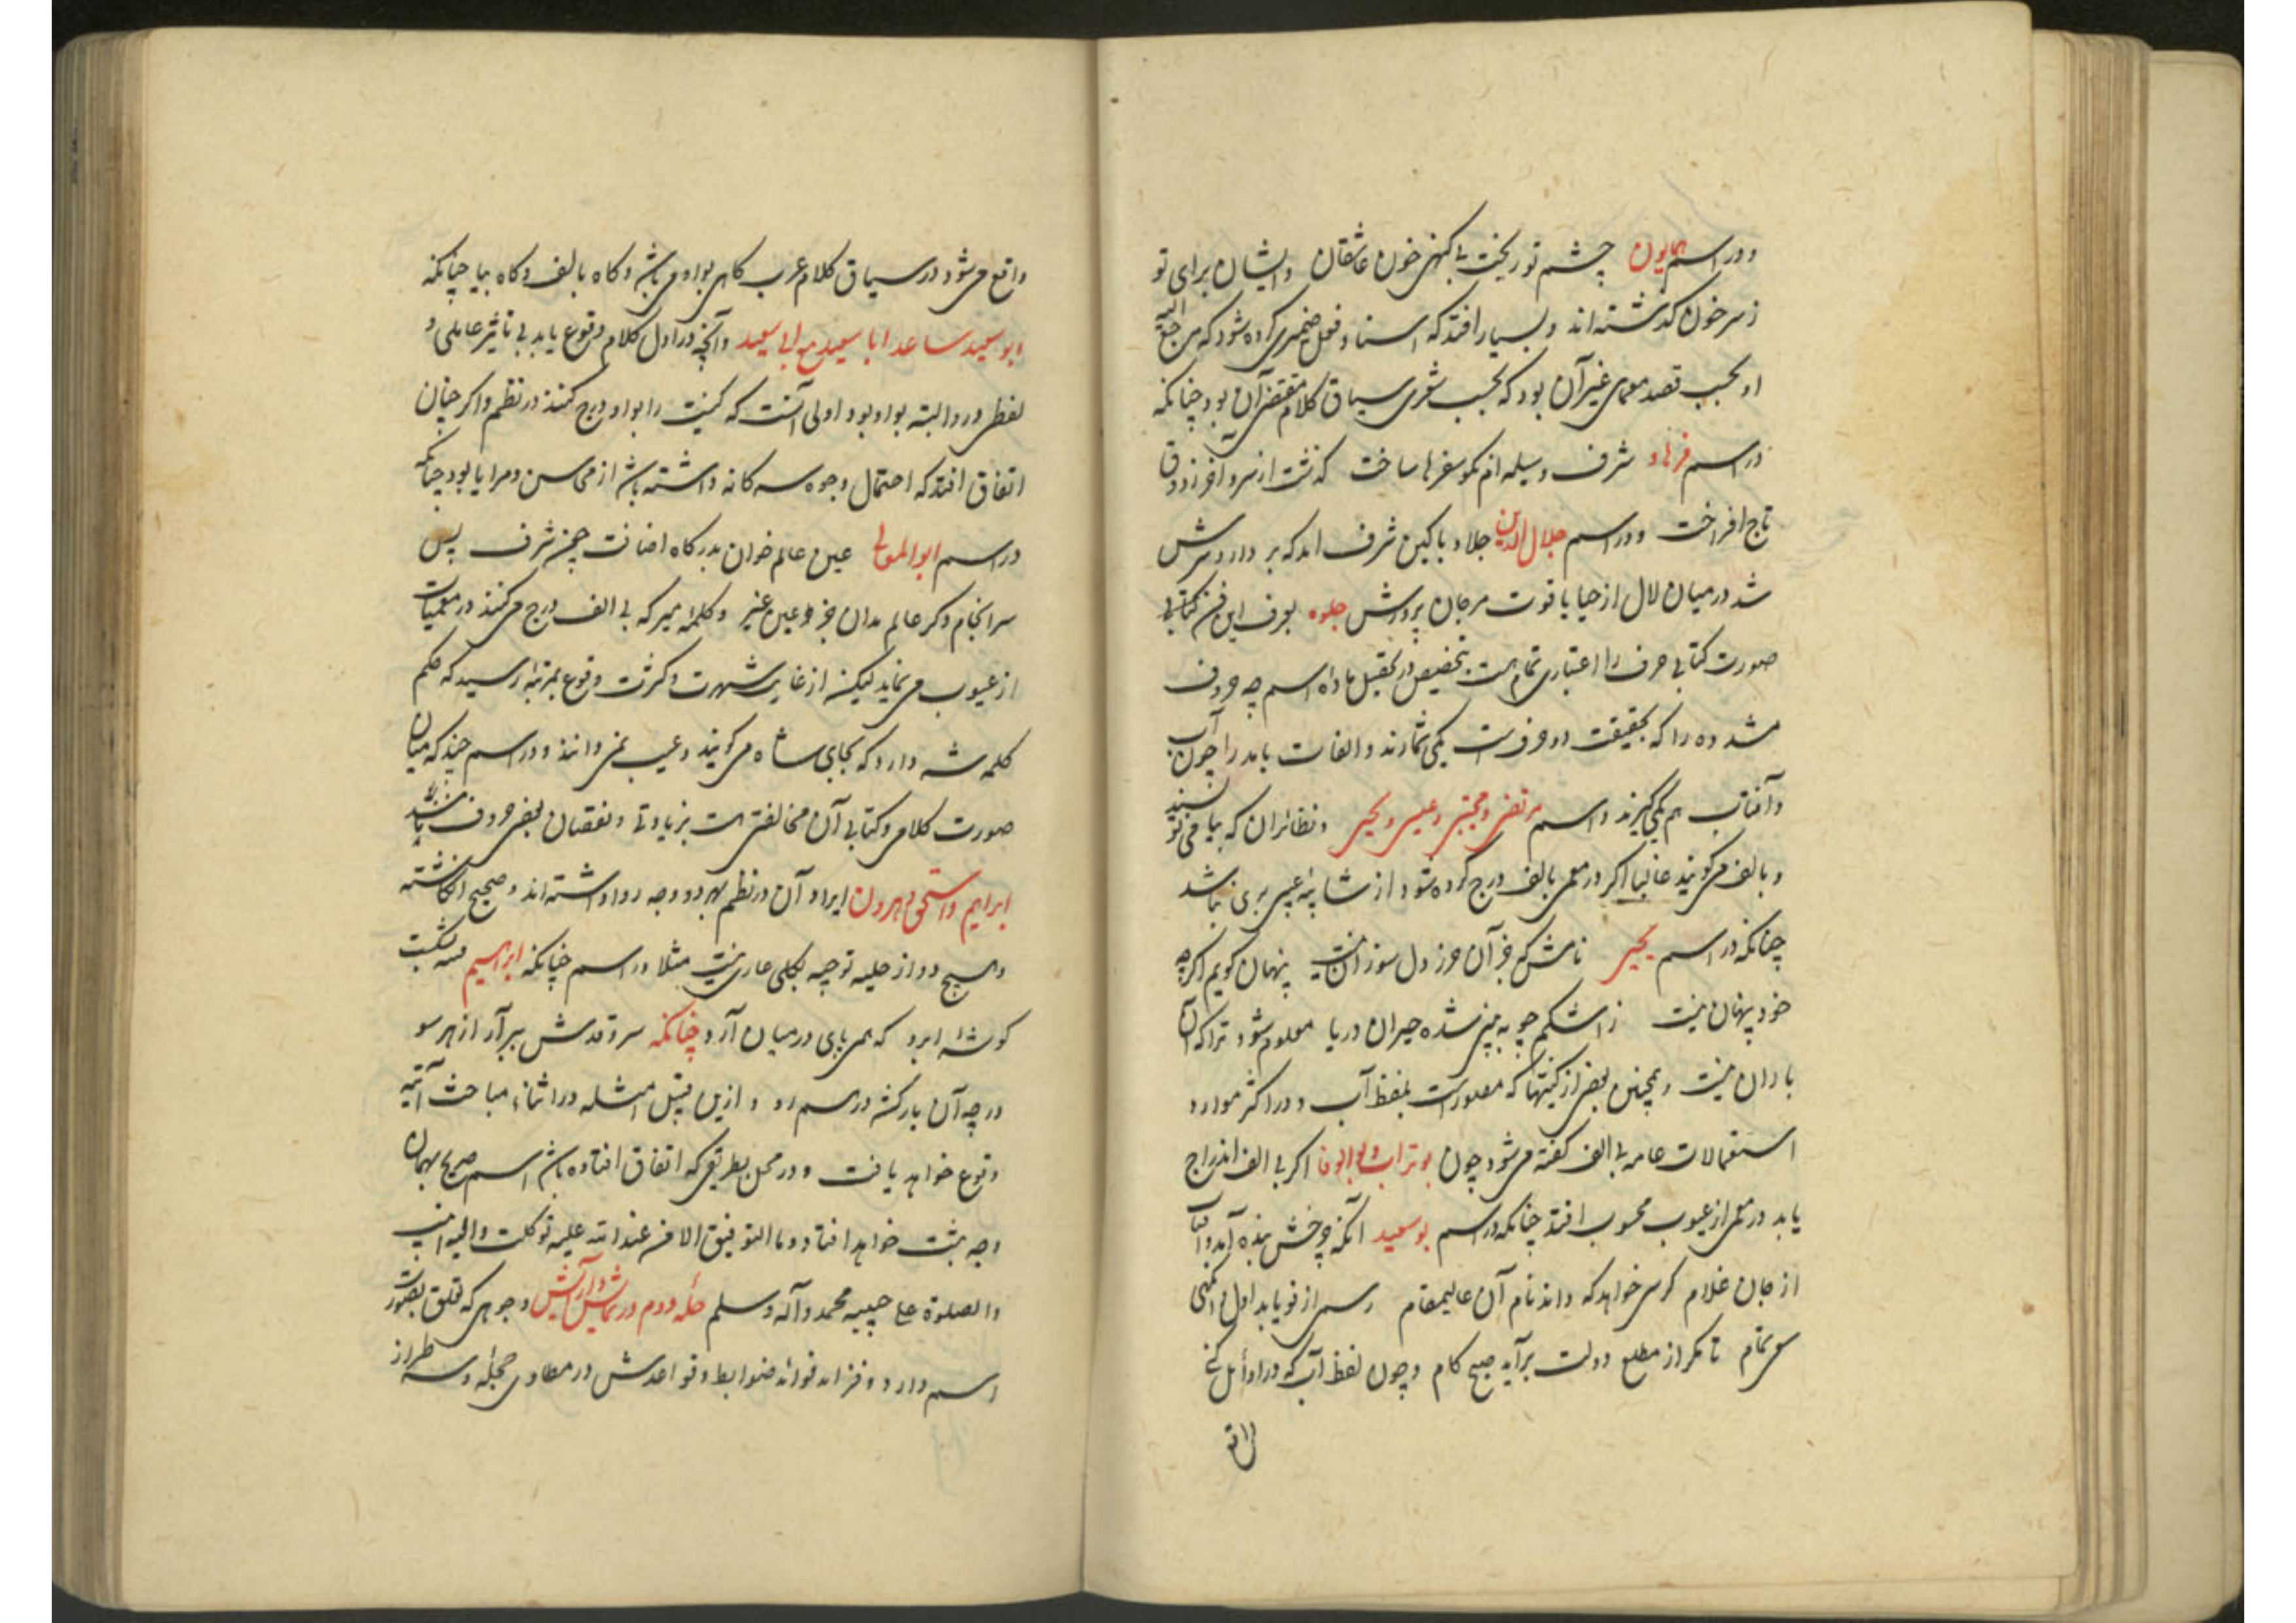 و در اسم همایون چشم تو ریخت بی گنهی خون عاشقان وایشان برای تو
ز سر خون گذشته‌اند و بسیار افتد که اسناد فعل ضمیری کرده شود که مرجع الیه
او بحسب قصد معمای غیر آن بود که بحسب شعری سیاق کلام مقتضی آن بود چنانکه
در اسم فرهاد شرف وسیله سفرها ساخت گذشت از سر و افر
تاج افراخت و در اسم جلال الدین جلا با کین شرف اند که بر دارد سرش
شد در میان لال از حیا یاقوت مرجان پرورش جلوه بعرف این فن کتابی
صورت کتابی حرف را اعتباری تمام است بتخصیص در تحصیل ماده اسم چه حروف
مشدده را که بحقیقت دو حرفست یکی شمارند و الفات را چون آب
و آفتاب هم یکی گیرند و اسم مرتضی و مجتبی و عیسی و یحیی و نظائر ان که بیا می نویسند
و بالف می گویند غالبا اگر در معمی بالف درج کرده شود از شائبه عیبی بری نباشد
چنانکه در اسم یحیی نامش که جز آن حرز دل سوزان نیست پنهان گویم اگرچه
خود پنهان نیست ز اشکم چو به بینی شده حیران دریا معلوم شود ترا که آن
باران نیست و همچنین بعضی از کنیتها که مصدرست بلفظ آب و در اکثر موارد
استعمالات عامه بی الف گفته می شود چون بوتراب و بوالوفا اگر بی الف اندراج
یابد در معمی از عیوب محسوب افتد چنانکه در اسم بوسعید آنکه چرخش بنده آمد وآفتاب
از جان غلام کر سی خواهد که داند نام آن عالیمقام رسم از نو یابد اول
سعی تمام تا مگر از مطلع دولت برآید صبح کام و چون لفظ آب که در اوائل کنی
واقع
واقع می شود در سیاق کلام عرب گاهی بواو می باشد و گاه بالف و گاه بیا چنانکه
ابو سعید ساعد ابا سعید مع ابی سعید و آنچه در اول کلام وقوع یابد بی تاثیر عاملی و
لفظی در و البته بواو بود اولی آنست که کنیت را بواو درج کنند در نظم و اگر چنان
اتفاق افتد که احتمال وجوه سه گانه داشته باشد از محاسن و مزایا بود چنانکه
در اسم ابوالمعالی عین عالم خوان بدرگاه اضافت چین شرف پس
سرانجام دگر عالم بدان جز و عین غیر و کلمه میر که بی الف درج می کنند در معمیات
از عیوب می نماید لیکن از غایت شهرت و کثرت وقوع بمرتبه رسید که حکم
کلمه شه دارد که بجای شاه می گویند و عیب نمی دانند و در اسم چند که میان
صورت کلامی و کتابی آن مخالفتی است بزیادتی و نقصان بعضی حروف باشد
ابراهیم و اسحق و هرون ایراد آن در نظم بهر دو وجه روا داشته‌اند و صحیح انگاشته
و هیچ دو از حلیه توجیه بکلی عاری نیست مثلا در اسم چنانکه ابراهیم
گوشه ابرو که همی پای در میان آرد چنانکه سر و قدش ببر آر از هر سو
در چه آن بار کشد در سم رو و ازین قبیل امثله در اثناء مباحث آتیه
وقوع خواهد یافت و در محل بطریقی که اتفاق افتاده باشد اسم صریح بهمان
وجه ثبت خواهد افتاد و ما التوفیق الا من عند الله علیه توکلت و الیه انیب
و الصلوة علی حبیبه محمد و آله و سلم حله دوم در نمایش و آرایش و جوهی که تعلق بصورت
اسم دارد و فرائد فوائد ضوابط و قواعدش در مطاوی حجله و سه طراز